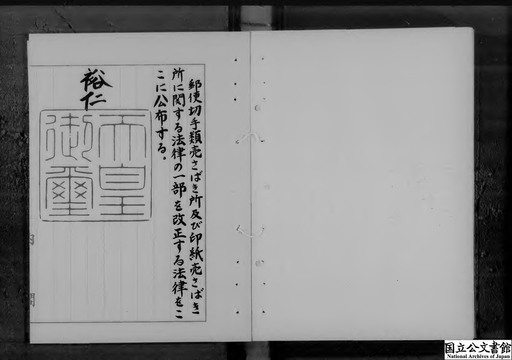 郵便切手類売さばき所及び印紙売さばき
所に関する法律の一部を改正する法律をこ
こに公布する。
裕仁
天皇
御璽
国立公文書館
National Archives of Japan